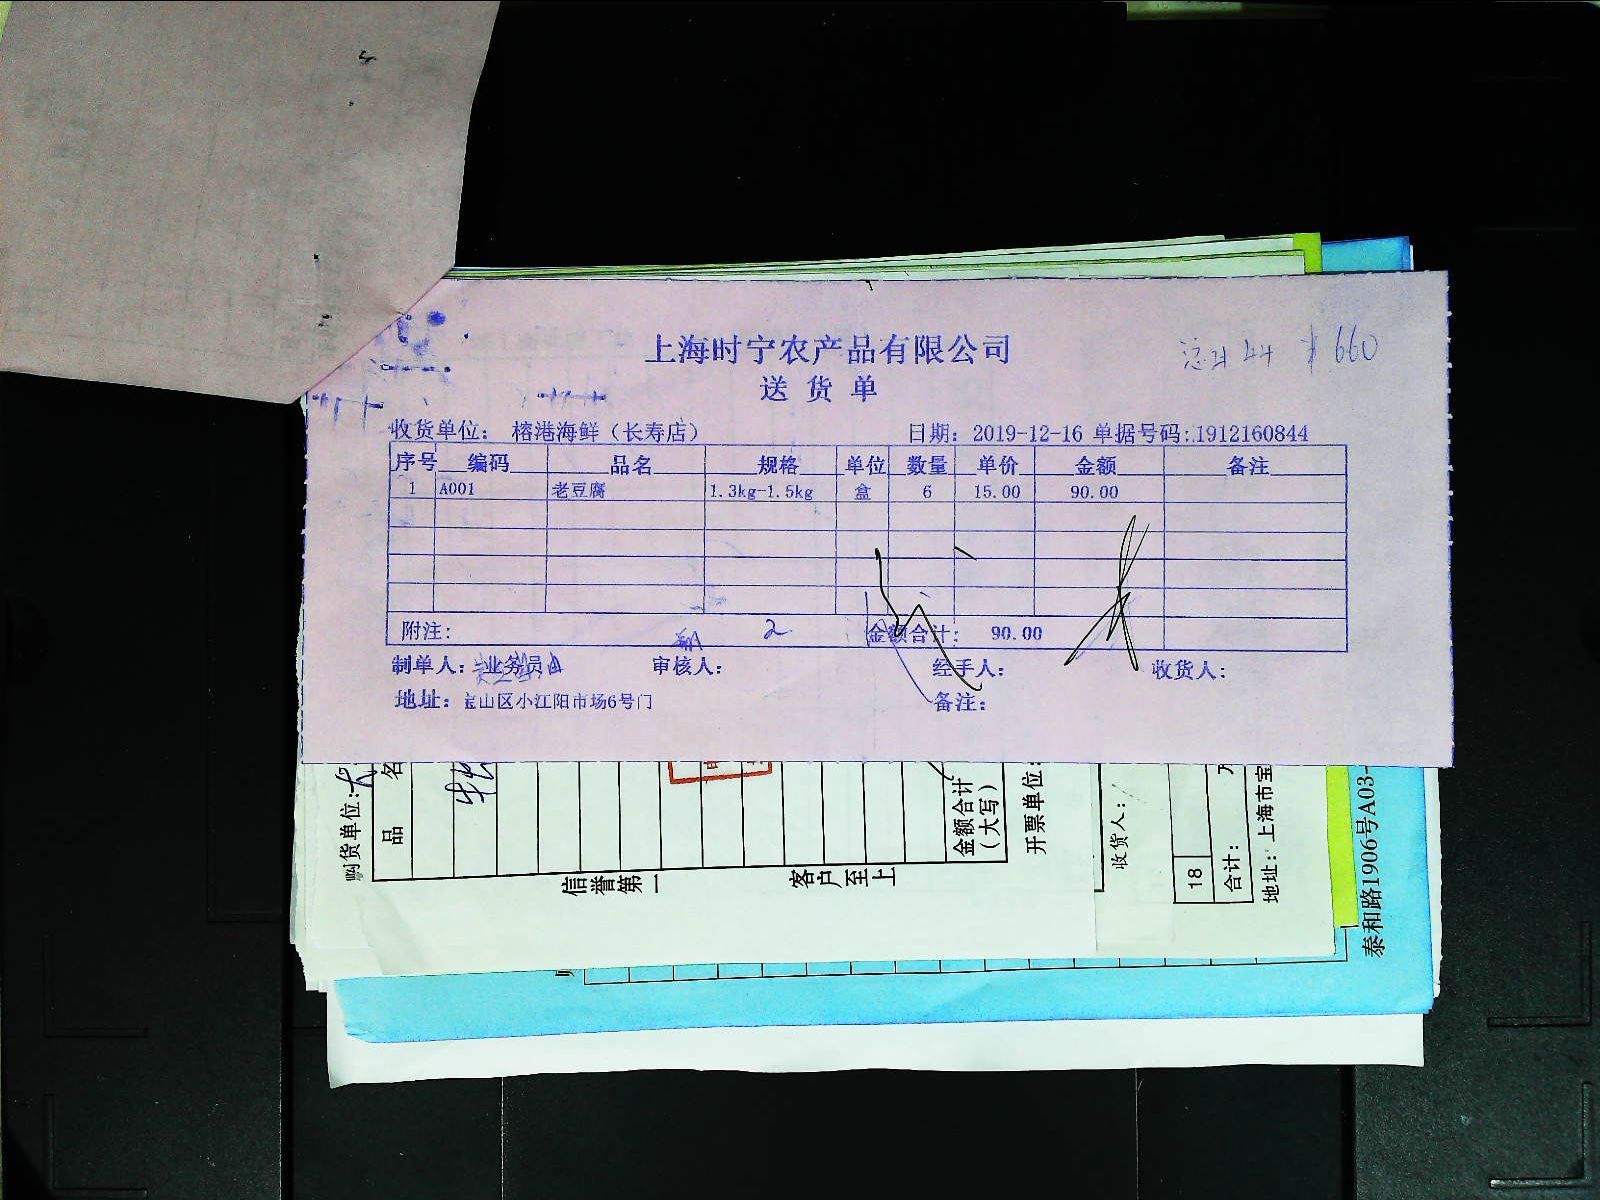 上海时宁农产品有限公司
总计 44 ¥ 660
送 货 单
收货单位： 榕港海鲜（长寿店）
日期： 2019-12-16 单据号码：1912160844
序号 编码 品名 规格 单位 数量 单价 金额 备注
1 A001 老豆腐 1.3kg-1.5kg 盒 6 15.00 90.00
附注： 2 金额合计： 90.00
制单人： 业务员 审核人： 经手人： 收货人：
地址： 宝山区小江阳市场6号门 备注：
购货单位：
品 名
信誉第一
客户至上
金额合计
（大写）
开票单位：
收货人：
18
合计：
地址：上海市宝
泰和路1906号A03-